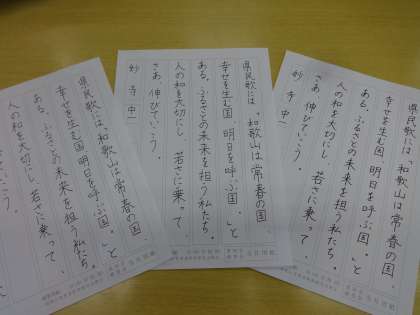 県民歌には、「和歌山は常春の国、
幸せを生む国、明日を呼ぶ国。」と
ある。ふるさとの未来を担う私たち。
人の和を大切にし、若さに乗って、
さあ、伸びていこう。
妙寺中一
県民歌には、「和歌山は常春の国
幸せを生む国、明日を呼ぶ国。」と
ある。ふるさとの未来を担う私たち。
人の和を大切にし、若さに乗って
さあ、伸びていこう。
妙寺中一
県民歌には、「和歌山は常春の国、
幸せを生む国、明日を呼ぶ国。」と
ある。ふるさとの未来を担う私たち。
人の和を大切にし、若さに乗って、
ていこう。